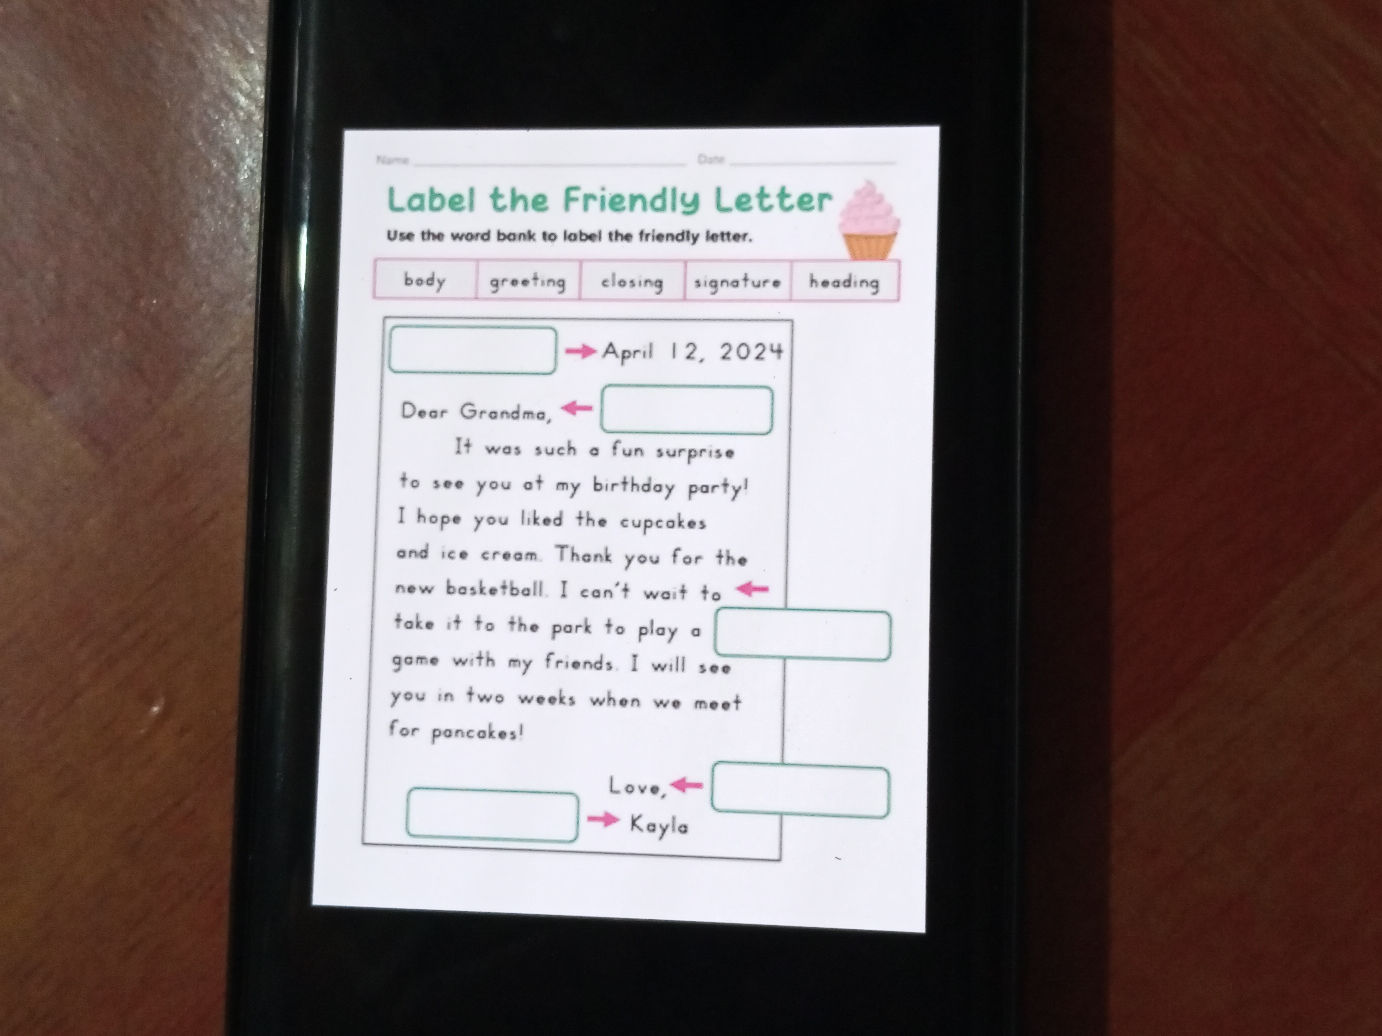 Name Date
Label the Friendly Letter
Use the word bank to label the friendly letter.
body greeting closing signature heading
April 12, 2024
Dear Grandma,
It was such a fun surprise
to see you at my birthday party!
I hope you liked the cupcakes
and ice cream. Thank you for the
new basketball. I can't wait to
take it to the park to play a
game with my friends. I will see
you in two weeks when we meet
for pancakes!
Love,
Kayla